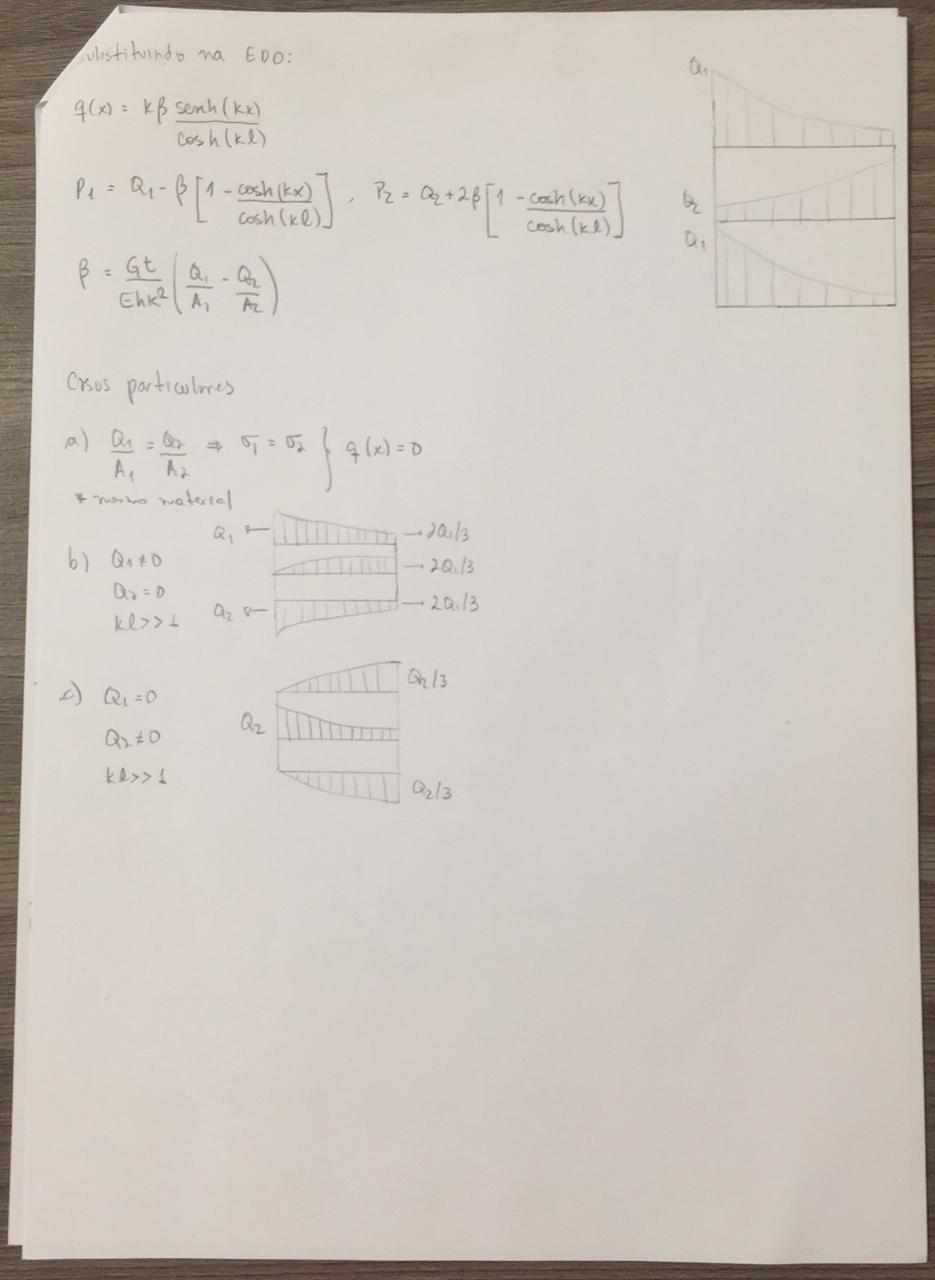 ubstituindo na EDO:
q(x) = kβ senh(kx)/cosh(kl)
P1 = Q1 - β[1 - cosh(kx)/cosh(kl)], P2 = Q2 + 2β[1 - cosh(kx)/cosh(kl)]
β = Gt/Ehk² (Q1/A1 - Q2/A2)
Q1
Q2
Q1
Casos particulares
a) Q1/A1 = Q2/A2 ⇒ σ1 = σ2 } q(x) = 0
* mesmo material
b) Q1 ≠ 0
Q2 = 0
kl >> 1
Q1 → 2Q1/3
→ 2Q1/3
Q2 → 2Q1/3
c) Q1 = 0
Q2 ≠ 0
kl >> 1
Q2/3
Q2
Q2/3